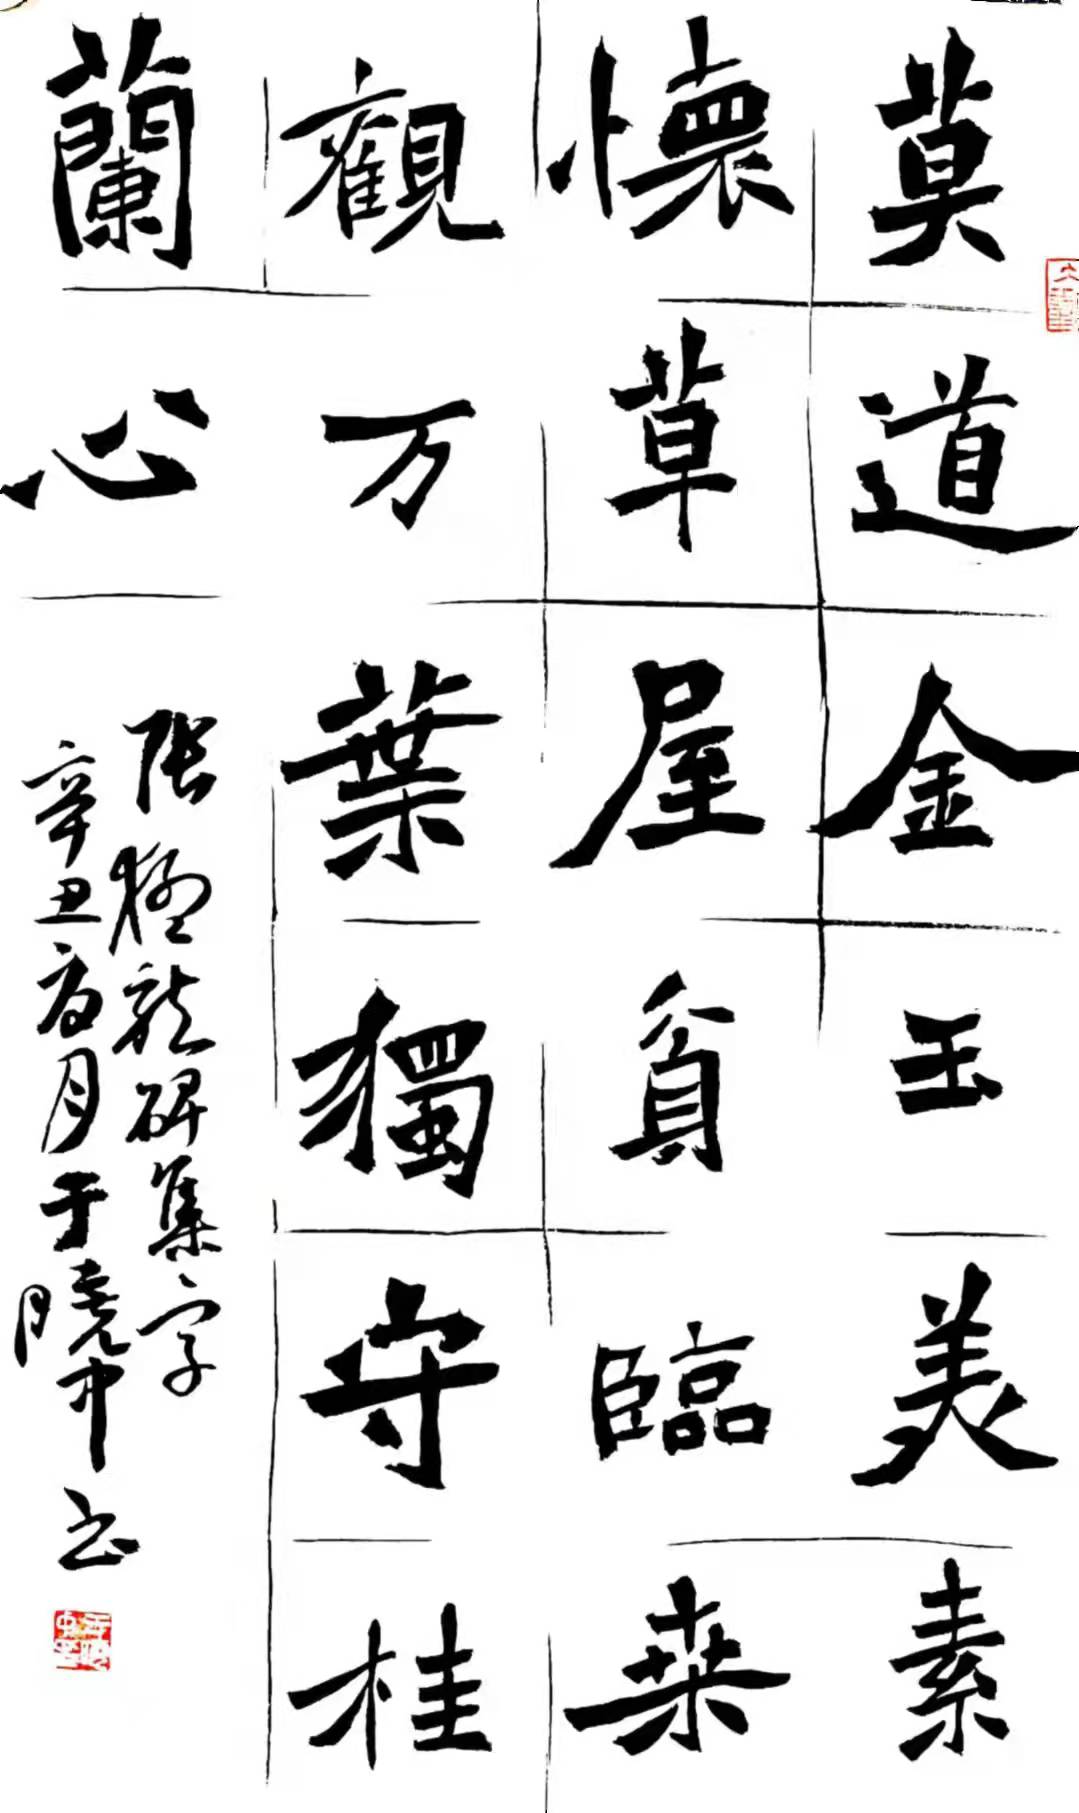 莫道金玉美素
懷草屋貧臨桒
觀万葉獨守桂
蘭心
张猛龙碑集字
辛丑夏月于曉中书